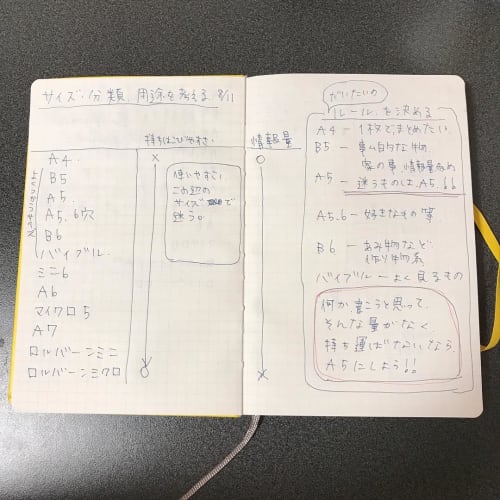 サイズ・分類、用途を考える 8/11
持ちはこびやすい
A4
B5
A5
A5.6穴
B6
バイブル
ミニ6
A6
マイクロ5
A7
ロルバーンミニ
ロルバーンミクロ
×
○
使いやすい
この辺の
サイズで
迷う。
情報量
○
×
だいたいの
ルールを決める
A4 ー 1枚でまとめたい
B5 ー 事ム的な物
家の事、情報量
A5 ー 迷うものは、A5.6
A5.6 ー 好きなもの
B6 ー あみ物など
作り物系
バイブル ー よく見るもの
何か書こうと思って、
そんな量がなく
持ち運ばないなら
A5にしよう!!